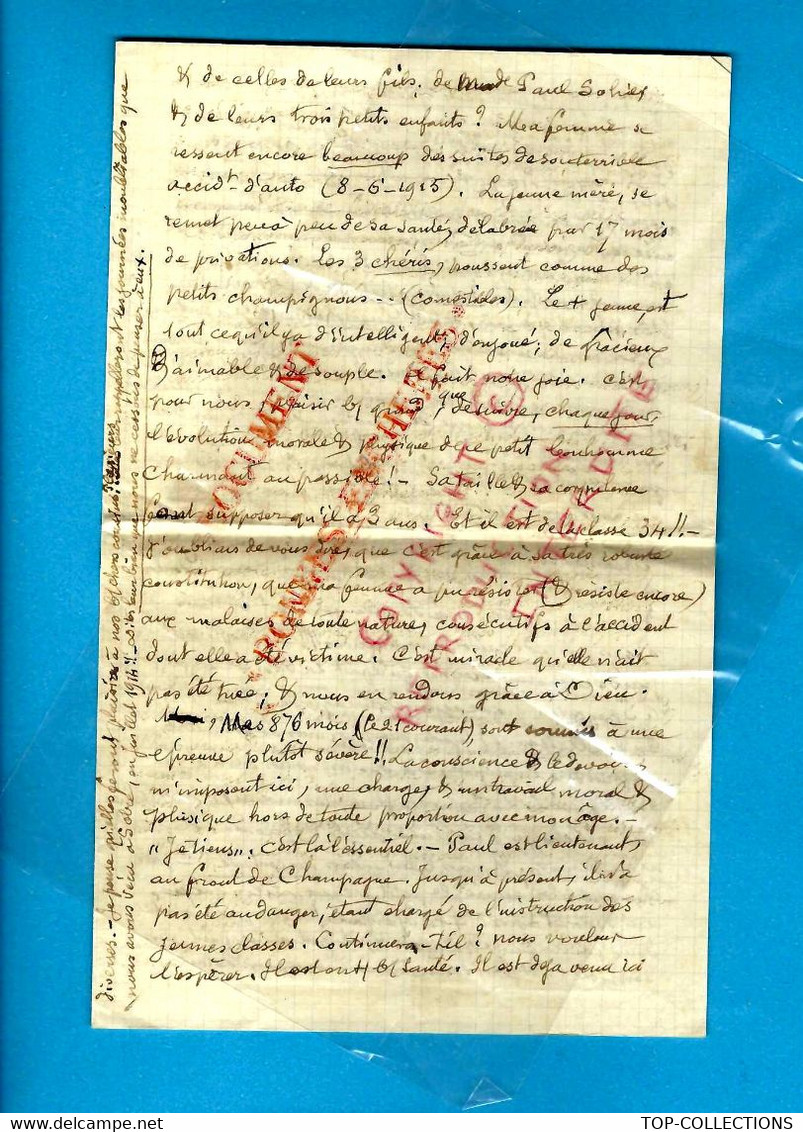 & de celles de leurs fils, de Made Paul Solier
& de leurs trois petits enfants ? Ma femme se
ressent encore beaucoup des suites de son terrible
accidt d'auto (8-6-1915). La jeune mère, se
remet peu à peu de sa santé, délabrée par 17 mois
de privations. Les 3 chéris, poussent comme des
petits champignons -- (comestibles). Le + jeune, est
tout ce qu'il y a d'intelligent, d'enjoué, de gracieux
d'aimable & de souple. Il fait notre joie. C'est
pour nous, plaisir que de suivre, chaque jour,
l'évolution morale & physique de ce petit bonhomme
charmant au possible !- Sa taille & sa corpulence
font supposer qu'il a 3 ans. Et il est de la classe 34 !!-
J'oubliais de vous dire, que c'est grâce à sa très robuste
constitution, que ma femme a pu résister (& résiste encore)
aux malaises de toute nature, consécutifs à l'accident
dont elle a été victime. C'est miracle qu'elle n'ait
pas été tuée ; & nous en rendons grâce à Dieu.
Mes 876 mois (le 21 courant), sont soumis à une
épreuve plutôt sévère !! La conscience & le devoir
m'imposent ici, une charge, & un travail moral &
physique hors de toute proportion avec mon âge. -
"Je tiens". C'est là l'essentiel. - Paul est lieutenant,
au front de Champagne. Jusqu'à présent, il n'a
pas été au danger, étant chargé de l'instruction des
jeunes classes. Continuera-t-il ? nous voulons
l'espérer. Il est en santé. Il est déjà venu ici
diverses. - Je pense qu'elles feront plaisir à nos chers cousins, rappellera et les journées inoubliables que
nous avons vécu à en juillet 1914 !! - Dites leur bien que nous ne cessons de penser à eux.
DOCUMENT
BONNES ENCHERES
COPYRIGHT ©
REPRODUCTION
INTERDITE
TOP-COLLECTIONS